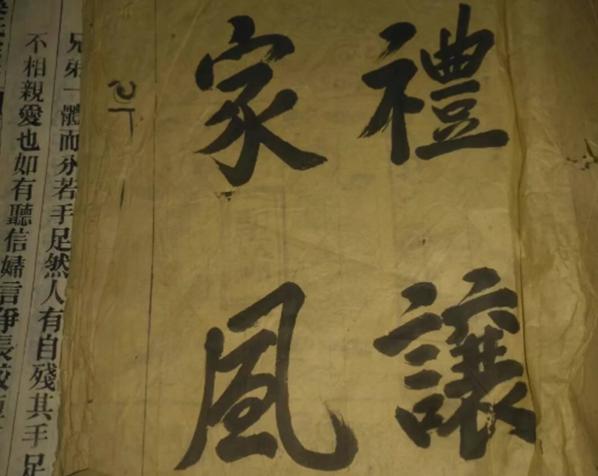 禮讓
家風
兄弟一體而分若手足然人有自殘其手足
不相親愛也如有聽信婦言爭長較